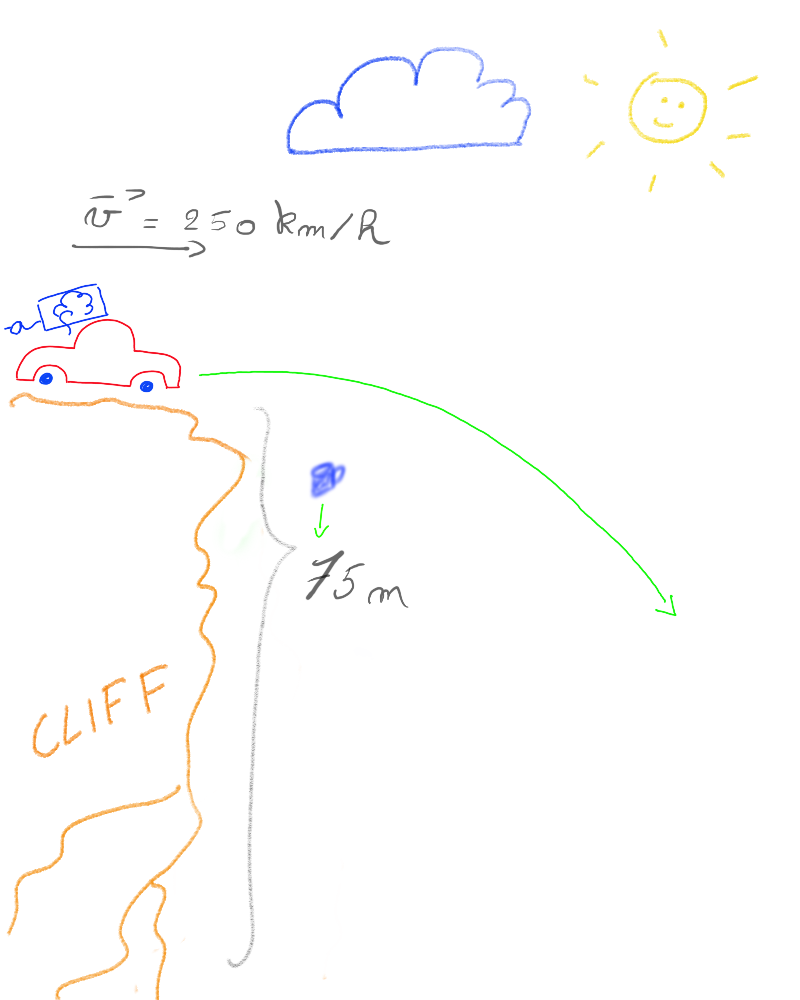 v⃗ = 250 km/h
75 m
CLIFF